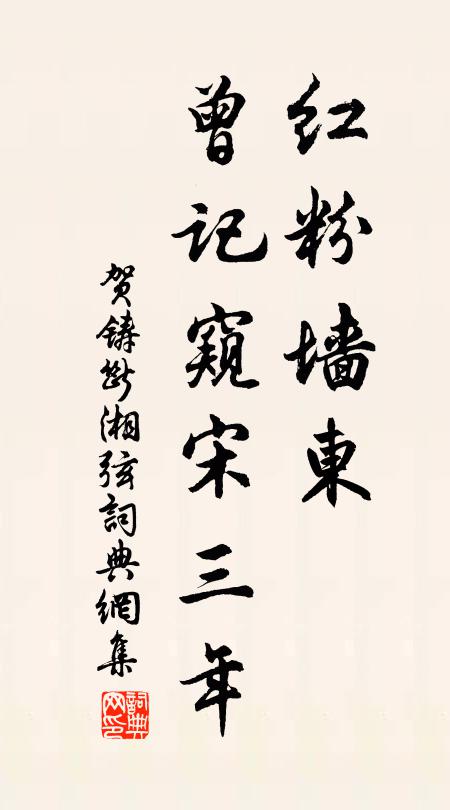 红粉墙東
曾记窺宋三年
贺鑄断湘弦詞典網集
詞典网印